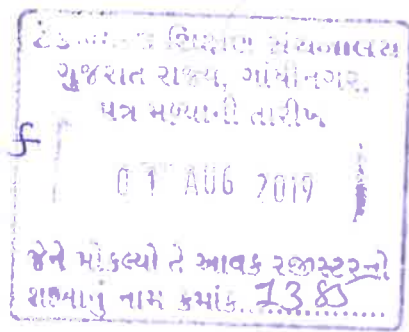 શિક્ષણ સંચનાલય
ગુજરાત રાજ્ય, ગાંધીનગર.
પત્ર મળ્યાની તારીખ
01 AUG 2019
જેને મોકલ્યો તે આવક રજીસ્ટરનો
શાખાનું નામ ક્રમાંક..